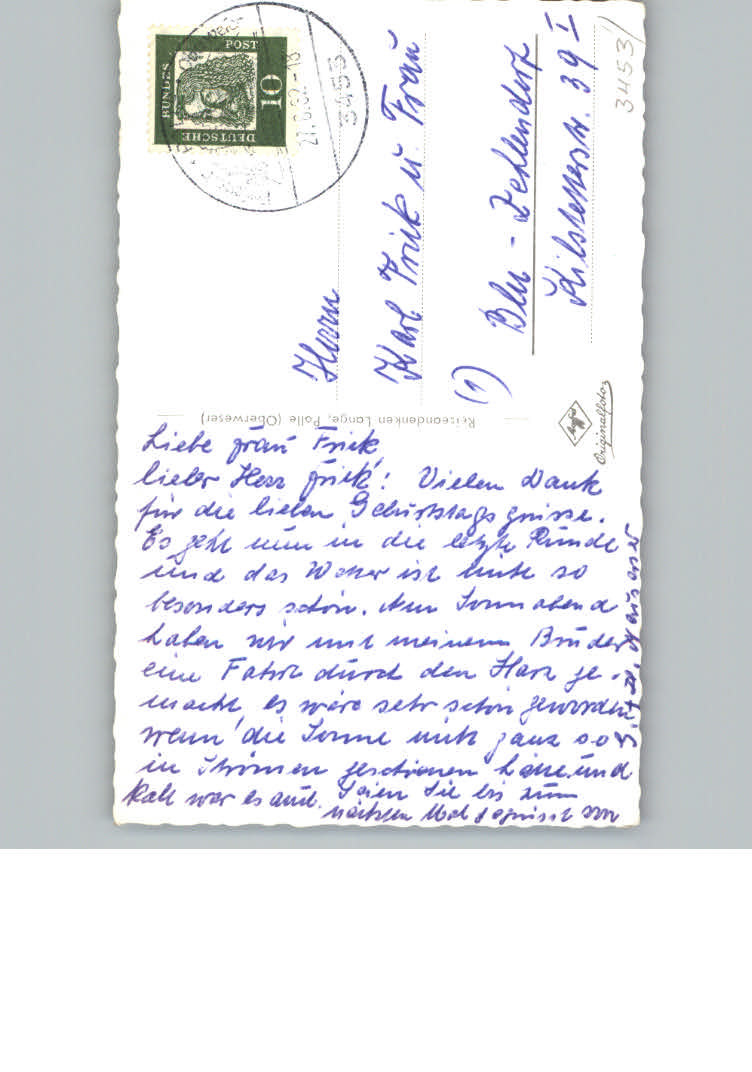 DEUTSCHE
BUNDES
POST
10
27.6.62.-18
3453
3453
Herrn
Karl Frick u. Frau
(1) Bln - Zehlendorf
39 I
Reiseandenken Lange, Polle (Oberweser)
Agfa
Originalfoto
Liebe Frau Frick,
lieber Herr Frick! Vielen Dank
für die lieben Geburtstagsgrüsse.
Es geht nun in die letzte Runde
und das Wetter ist nicht so
besonders schön. Am Sonnabend
haben wir mit meinem Bruder
eine Fahrt durch den Harz ge-
macht, es wäre sehr schön geworden
wenn die Sonne nicht ganz so
in Strömen geschienen hätte und
kalt war es auch. Seien Sie bis zum
nächsten Mal gegrüsst von